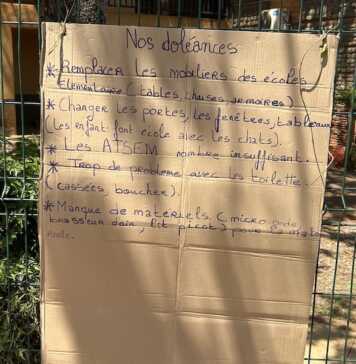 Nos doléances
* Remplacer les mobiliers des écoles
Elementaire (tables, chaises, armoires)
* Changer les portes, les fenêtres, tableaux
(les enfant font ecole avec les chats).
* Les ATSEM nombre insuffisant.
* Trop de problème avec les toilette.
(cassées, boucher).
* Manque de materiels. (micro onde
brasseur dair, lit picot) pour la mater
nelle.